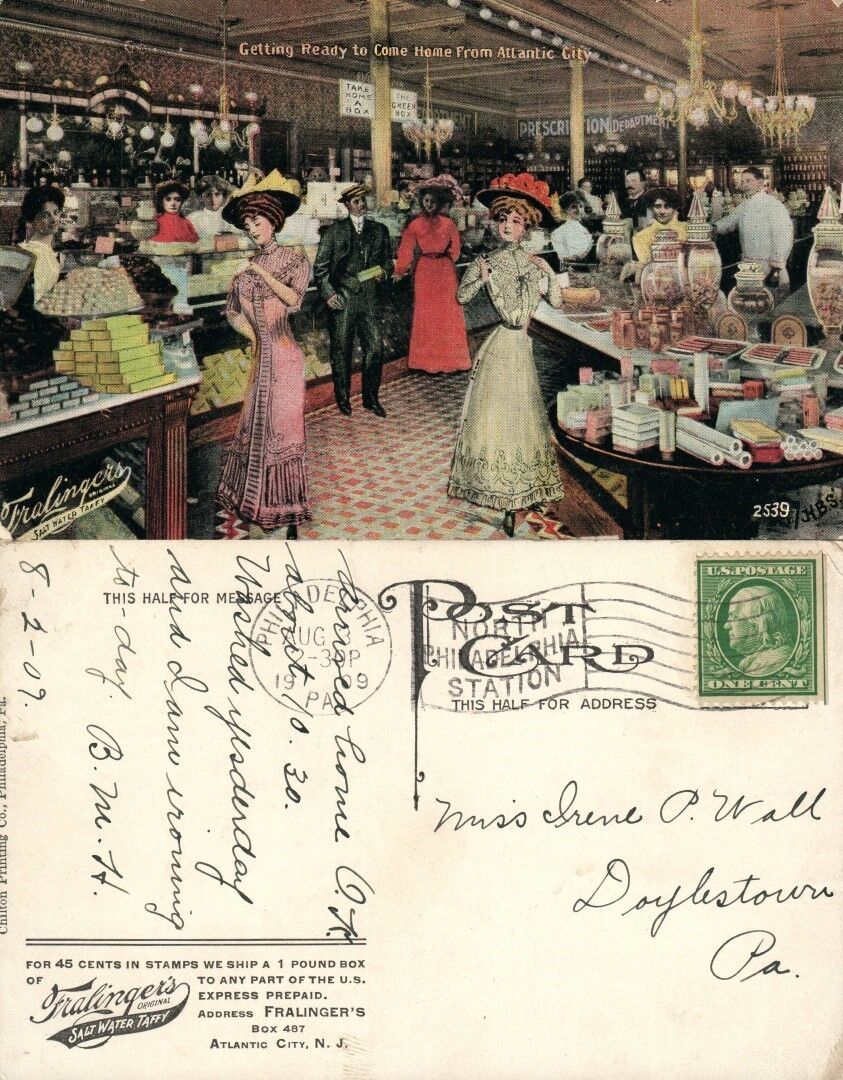 Getting Ready to Come Home From Atlantic City
TAKE
HOME
A
BOX
THE
GREEN
BOX
PRESCRIPTION DEPARTMENT
Fralinger's
ORIGINAL
SALT WATER TAFFY
2539
THIS HALF FOR MESSAGE
8-2-09.
Arrived home O.K.
about 10.30.
Washed yesderday
and I am ironing
to-day.
B. M. H.
PHILADELPHIA
AUG
-30P
1909
PA
NORTH
PHILADELPHIA
STATION
POST
CARD
THIS HALF FOR ADDRESS
U.S. POSTAGE
ONE CENT
Miss Irene P. Wall
Doylestown
Pa.
Chilton Printing Co., Philadelphia, Pa.
FOR 45 CENTS IN STAMPS WE SHIP A 1 POUND BOX
OF Fralinger's ORIGINAL SALT WATER TAFFY TO ANY PART OF THE U.S.
EXPRESS PREPAID.
ADDRESS FRALINGER'S
BOX 487
ATLANTIC CITY, N. J.